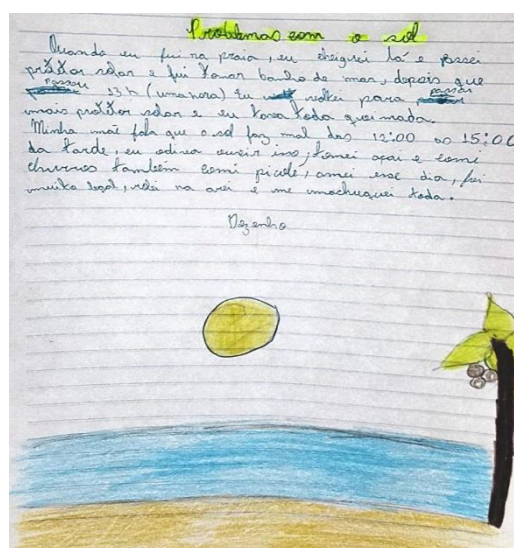 Problemas com o sol
Quando eu fui na praia, eu cheguei lá e passei
protitor solar e fui tomar banho de mar, depois que
passou 13 h (uma hora) Eu voltei para passar
mais protitor solar e eu tava toda queimada.
Minha mãe fala que o sol faz mal das 12:00 as 15:00
da tarde, eu odiava ouvir isso, tomei açai e comi
churros também comi picole, amei esse dia, foi
muito legal, rolei na arei e me machuquei toda.
Dezenho